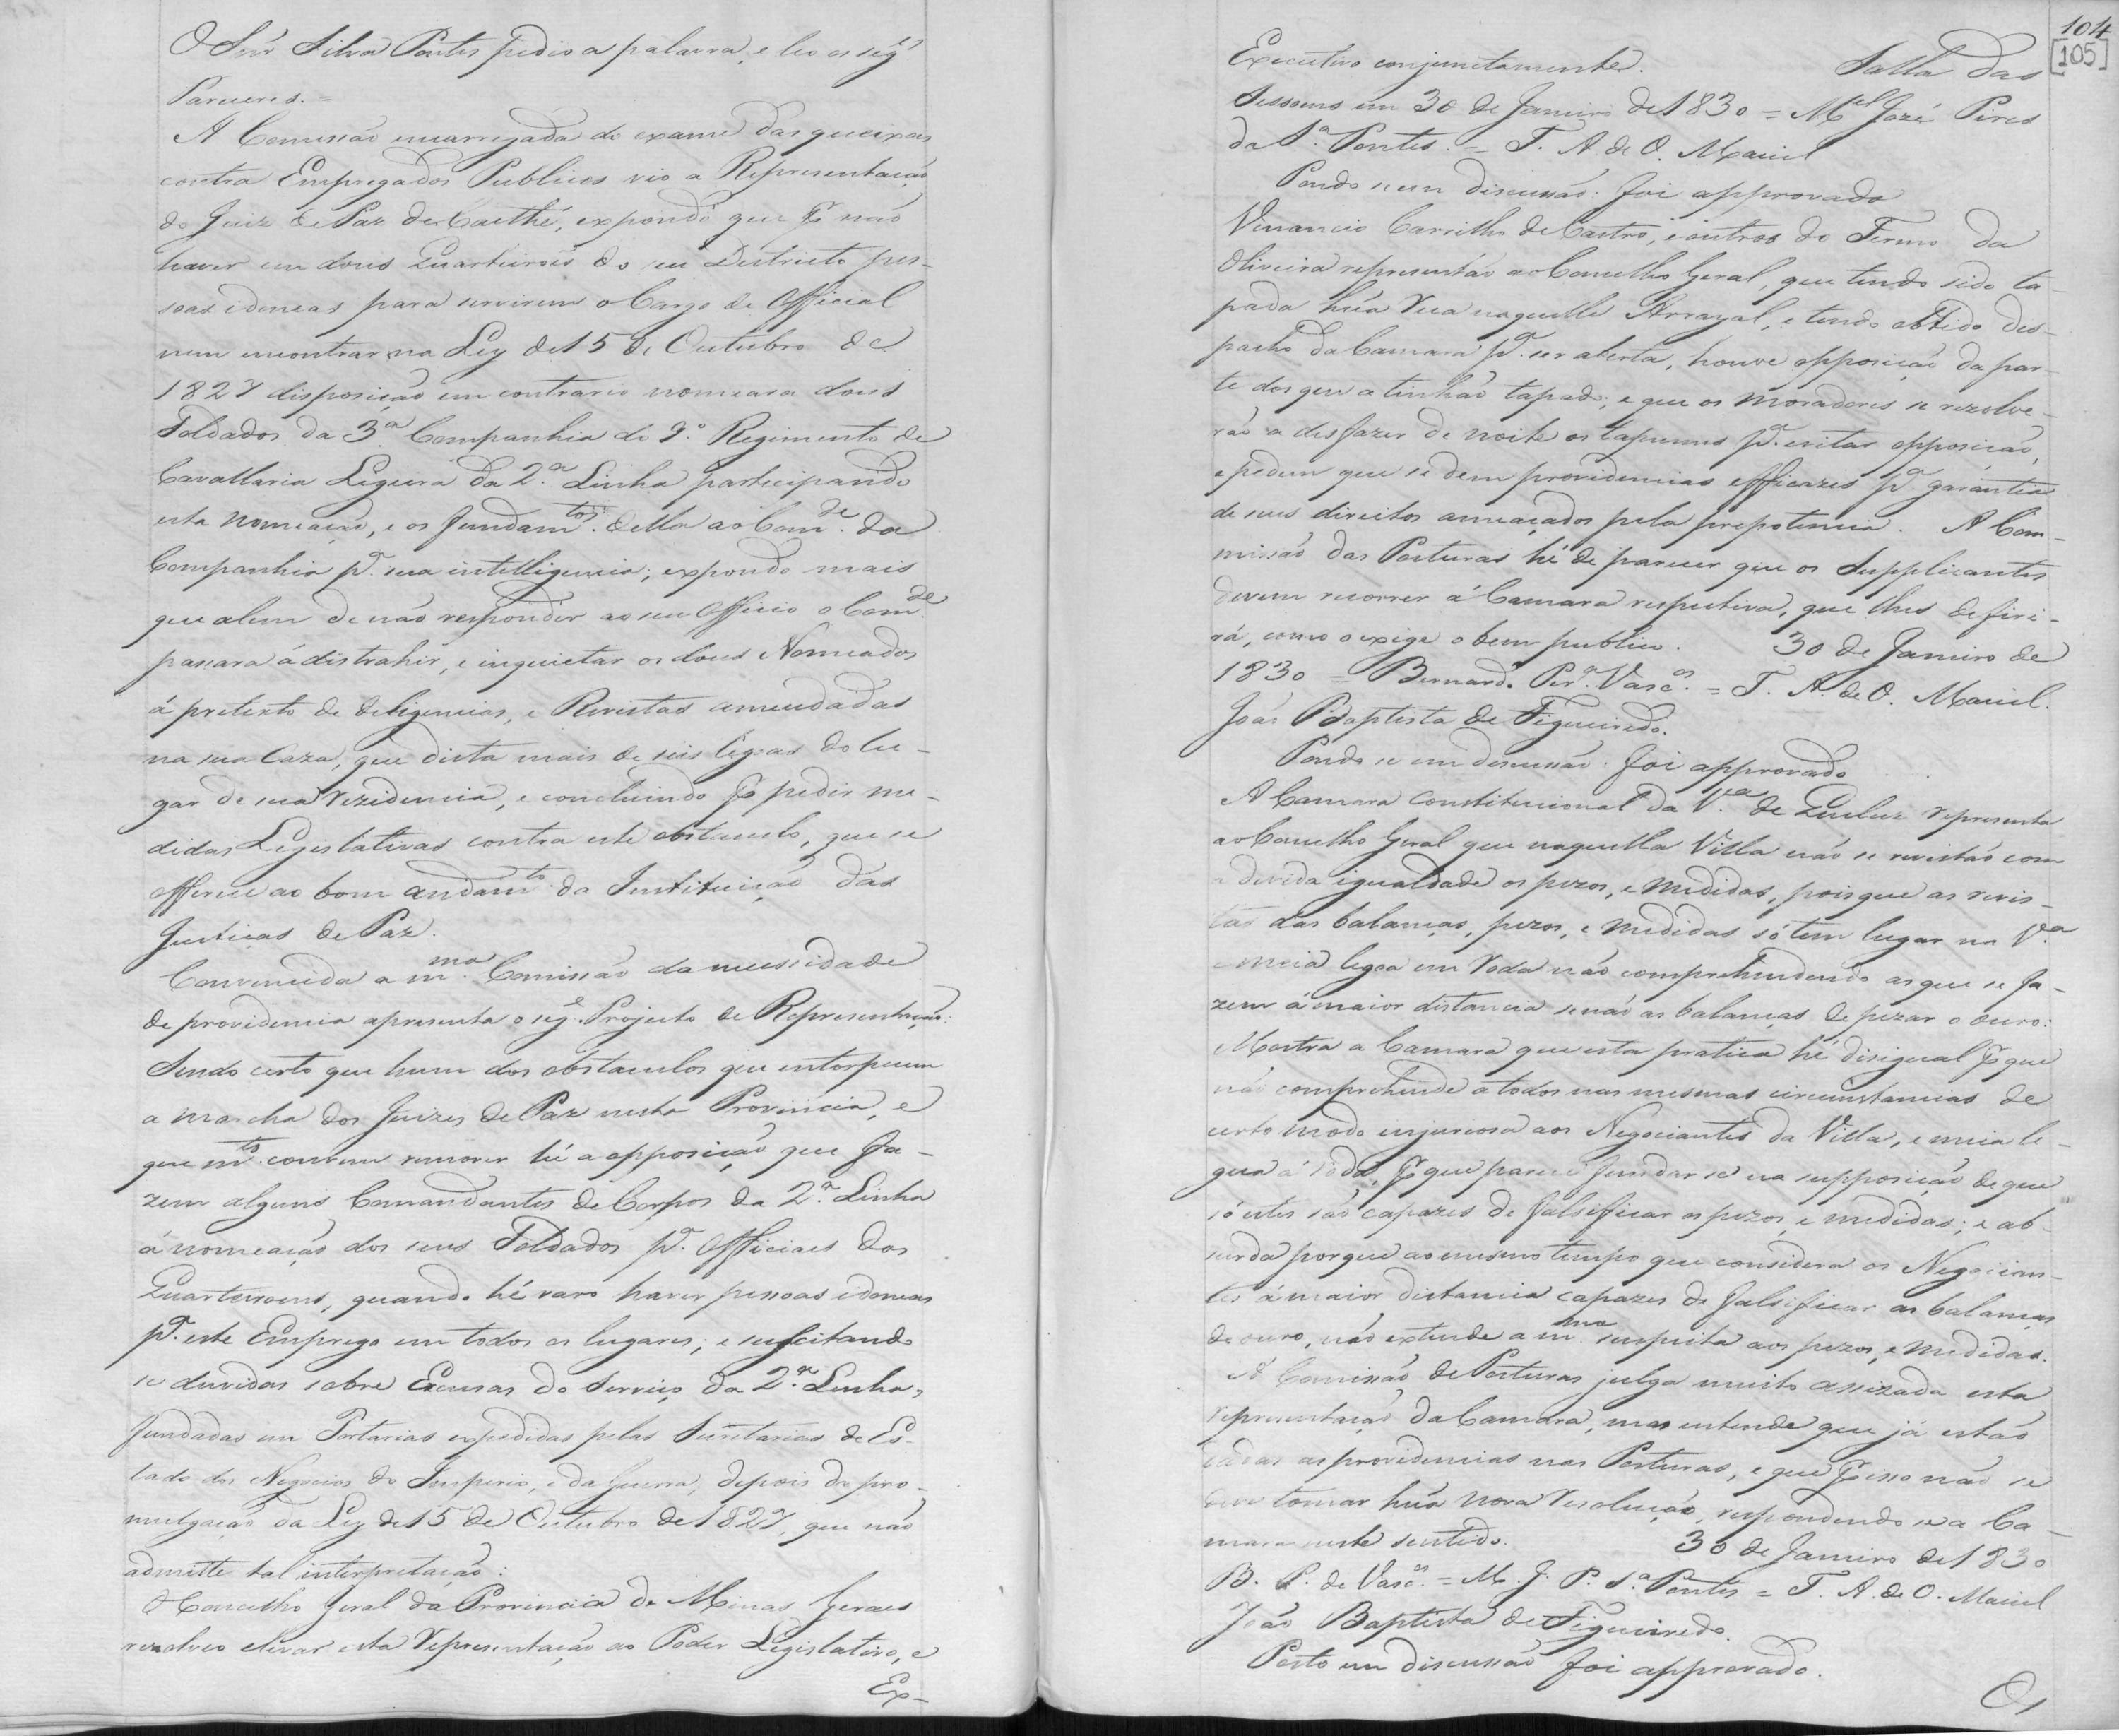 O Snr Silva Pontes pedio a palavra, e leo os seg.
Pareceres. =
A Comissão encarregada do exame das queixas
contra Empregados Publicos vio a Representação
do Juiz de Paz de Caethé, expondo que p.r não
haver em dous Quarteirões do seu Destricto pes-
soas idoneas para servirem o Cargo de Official
nem encontrar na Ley de 15 de Outubro de
1827 disposição em contrario nomeara dous
Soldados da 3.a Companhia do 9.o Regimento de
Cavallaria Ligeira da 2.a Linha participando
esta nomeação, e os fundam.tos della ao Com.de da
Companhia p.a sua intelligencia; expondo mais
que alem de não responder ao seu Officio o Com.de
passara á distrahir, e inquietar os dous Nomeados
á pretexto de deligencias, e Revistas ameudadas
na sua Caza, que dista mais de seis legoas do lu-
gar de sua rezidencia, e concluindo p.r pedir me-
didas Legislativas contra este obstaculo, que se
offerece ao bom andam.to da Instituição das
Justiças de Paz.
Convencida a m.ma Comissão da necessidade
de providencia apresenta o seg.e Projecto de Representação:
Sendo certo que hum dos obstaculos que entorpecem
a marcha dos Juizes de Paz nesta Provincia, e
que m.to convem remover hé a opposição que fa-
zem alguns Comandantes de Corpos da 2.a Linha
á nomeação dos seus Soldados p.a Officiaes dos
Quarteiroens, quando hé raro haver pessoas idoneas
p.a este Emprego em todos os lugares; e suscitando
se duvidas sobre Excusas do Serviço da 2.a Linha,
fundadas em Portarias expedidas pelas Secretarias de Es-
tado dos Negocios do Imperio, e da Guerra, depois da pro-
mulgação da Ley de 15 de Outubro de 1827, que não
admitte tal interpretação:
O Concelho Geral da Provincia de Minas Geraes
resolveo elevar esta Representação ao Poder Legislativo, e
Ex-
104
[105]
Executivo conjunctamente. Salla das
Sessoens em 30 de Janeiro de 1830 = M.el José Pires
da S.a Pontes. = T. A. de O. Maciel
Pondo se em discussão: foi approvado
Venancio Carrilho de Castro, e outros do Termo da
Oliveira representão ao Concelho Geral, que tendo sido ta-
pada húa rua naquelle Arrayal, e tendo obtido des-
pacho da Camara p.a ser aberta, houve opposição da par-
te dos que a tinhão tapado; e que os moradores se rezolve-
rão a desfazer de noite os tapumes p.a evitar opposição,
e pedem que se dem providencias efficazes p.a garantia
de seus direitos ameaçados pela prepotencia. A Com-
missão das Posturas hé de parecer que os Supplicantes
devem recorrer á Camara respectiva, que lhes deferi-
rá, como o exige o bem publico. 30 de Janeiro de
1830 = Bernard.o Per.a Vasc.os = T. A. de O. Maciel.
João Baptista de Figueiredo.
Pondo se em discussão: foi approvado
A Camara Constitucional da V.a de Queluz representa
ao Concelho Geral que naquella Villa não se revistão com
a devida igualdade os pezos, e medidas, pois que as revis-
tas das balanças, pezos, e medidas só tem lugar na V.a
e meia legoa em roda não comprehendendo as que se fa-
zem á maior distancia senão as balanças de pezar o ouro:
Mostra a Camara que esta pratica hé desigual p.r que
não comprehende a todos nas mesmas circunstancias de
certo modo injuriosa aos Negociantes da Villa, e meia le-
goa á roda, p.r que parece fundar se na supposição de que
só estes são capazes de falsificar os pezos, e medidas; e ab-
surda porque ao mesmo tempo que considera os Negocian-
tes á maior distancia capazes de falsificar as balanças
de ouro, não extende a m.ma suspeita aos pezos, e medidas.
A Comissão de Posturas julga muito assizada esta
representação da Camara, mas entende que já estão
dadas as providencias nas Posturas, e que p.r isso não se
deve tomar húa nova Resolução, respondendo se a Ca-
mara neste sentido. 30 de Janeiro de 1830
B. P. de Vasc.os = M. J. P. S.a Pontes = T. A. de O. Maciel
João Baptista de Figueiredo.
Posto em discussão foi approvado.
Os